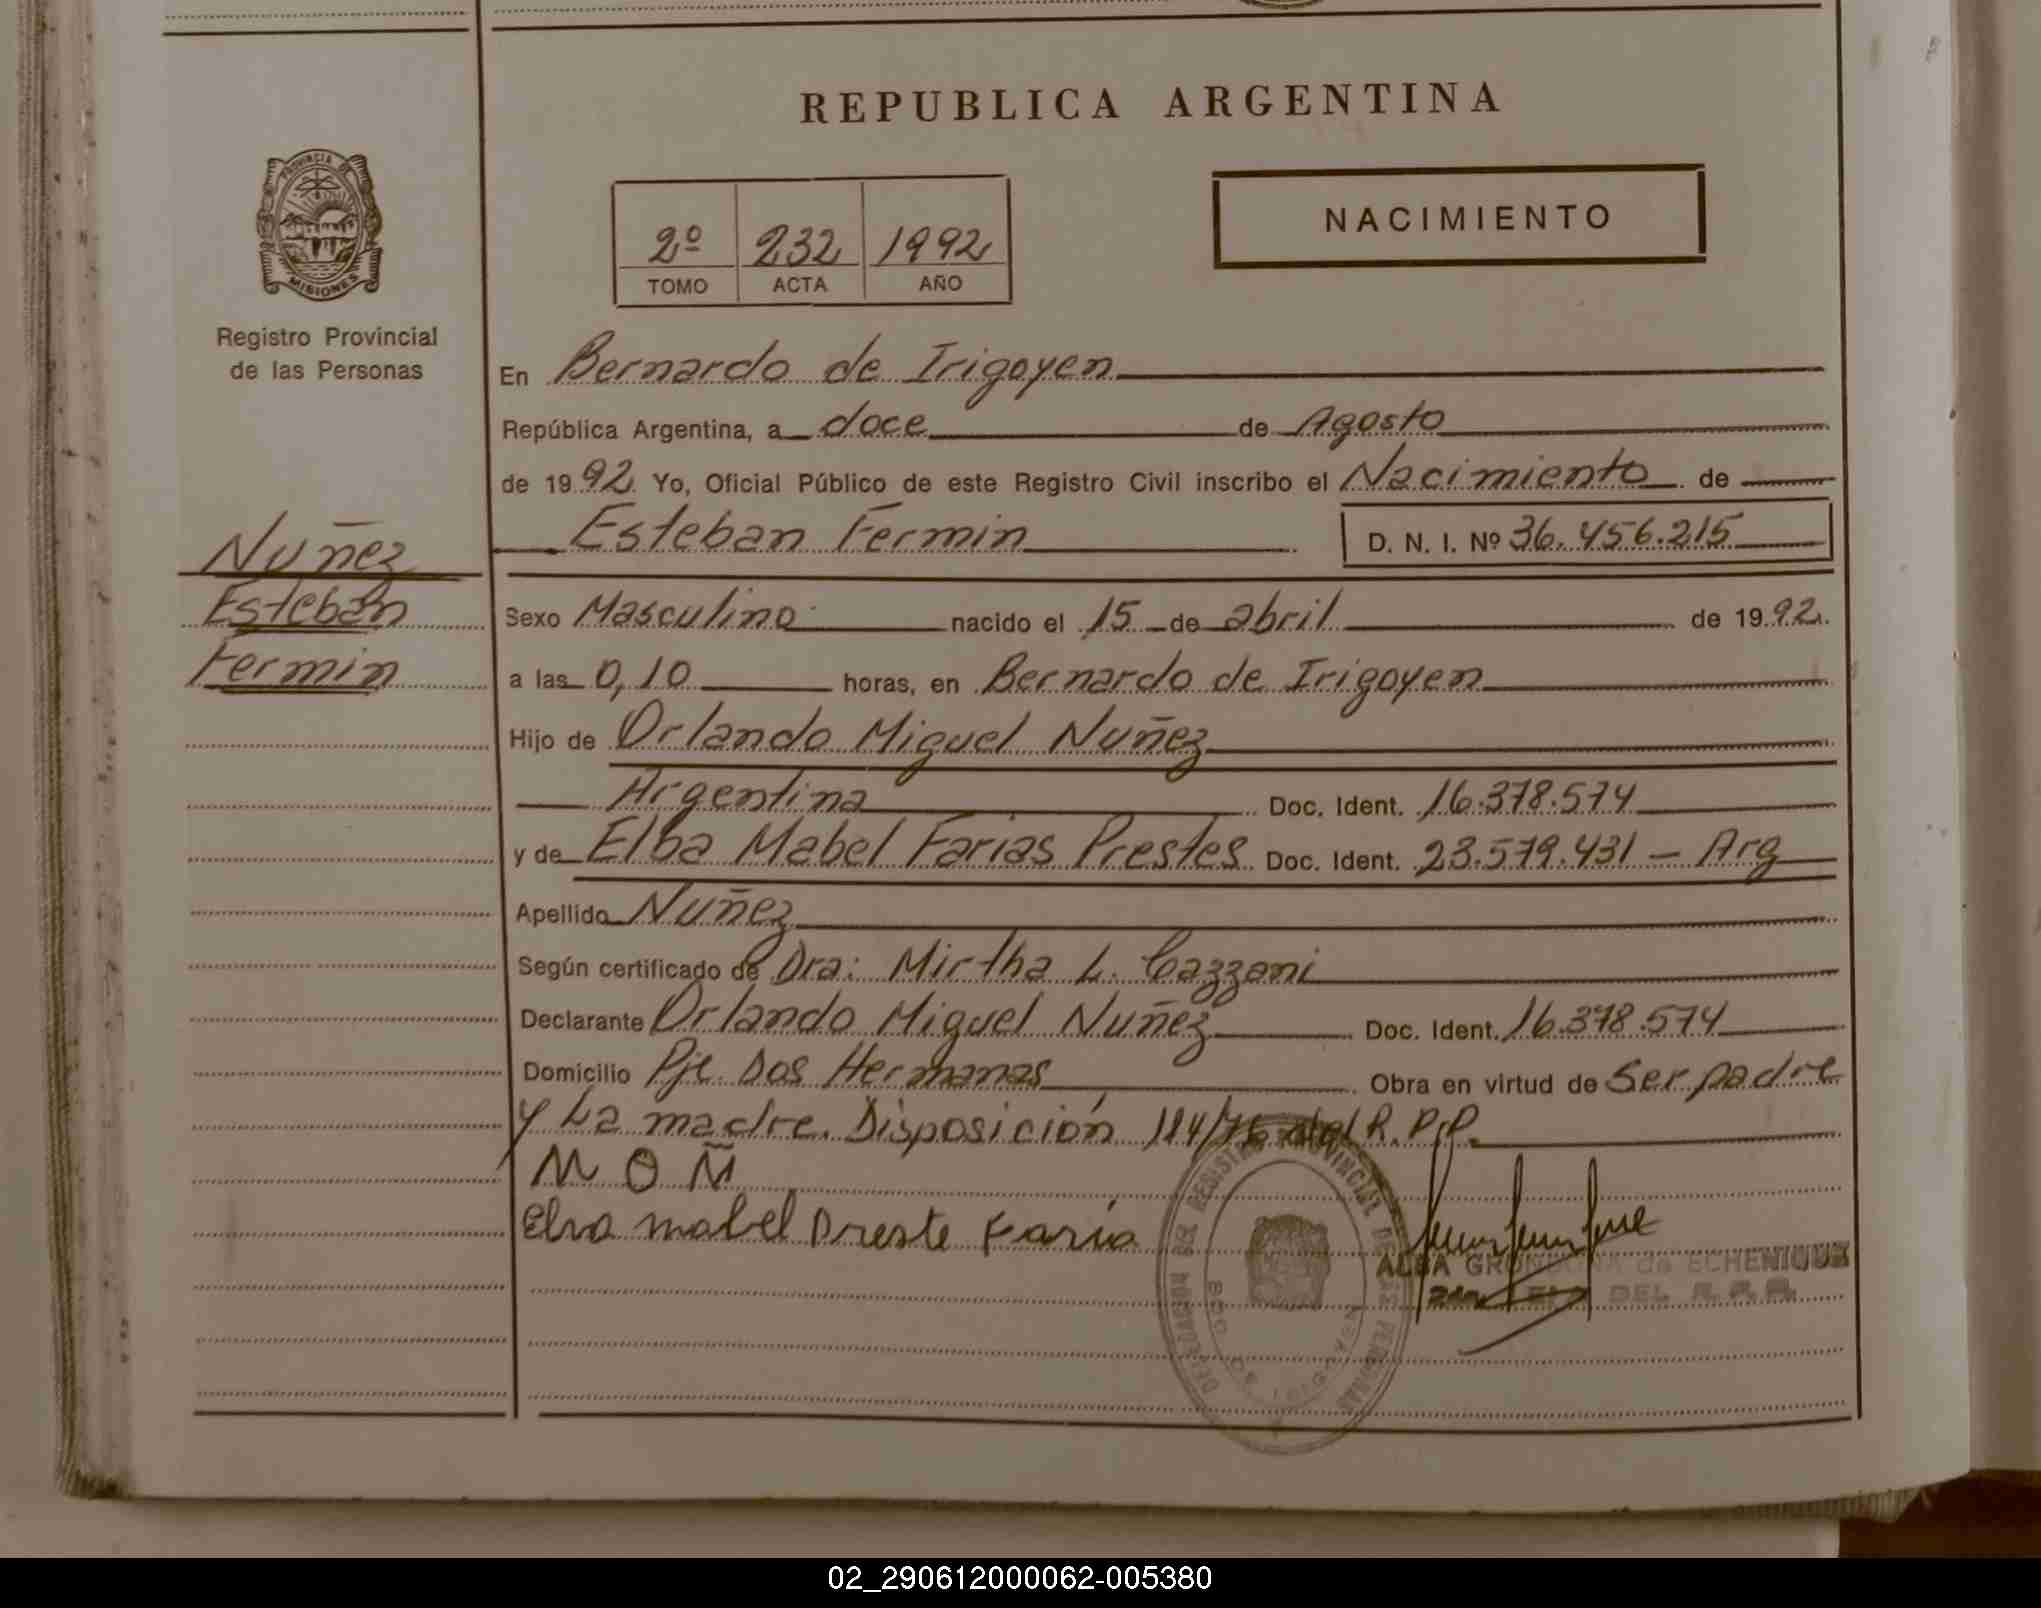 REPUBLICA ARGENTINA
PROVINCIA DE
MISIONES
Registro Provincial
de las Personas
2º 232 1992
TOMO ACTA AÑO
NACIMIENTO
En Bernardo de Irigoyen
República Argentina, a doce de Agosto
de 1992 Yo, Oficial Público de este Registro Civil inscribo el Nacimiento de
Esteban Fermin D. N. I. Nº 36.456.215
Nuñez
Esteban
Fermin
Sexo Masculino nacido el 15 de abril de 1992.
a las 0,10 horas, en Bernardo de Irigoyen
Hijo de Orlando Miguel Nuñez
Argentina Doc. Ident. 16.378.574
y de Elba Mabel Farias Prestes Doc. Ident. 23.579.431 - Arg
Apellido Nuñez
Según certificado de Dra: Mirtha L. Cazzani
Declarante Orlando Miguel Nuñez Doc. Ident. 16.378.574
Domicilio Pje. Dos Hermanas Obra en virtud de Ser padre
y La madre. Disposición 114/76 del R.P.P.
M O Ñ
Elva mabel Preste Faria
ALBA GRONDONA de ECHENIQUE
DEL R.P.P.
REGISTRO PROVINCIAL DE LAS PERSONAS
BDO. DE IRIGOYEN
02_290612000062-005380